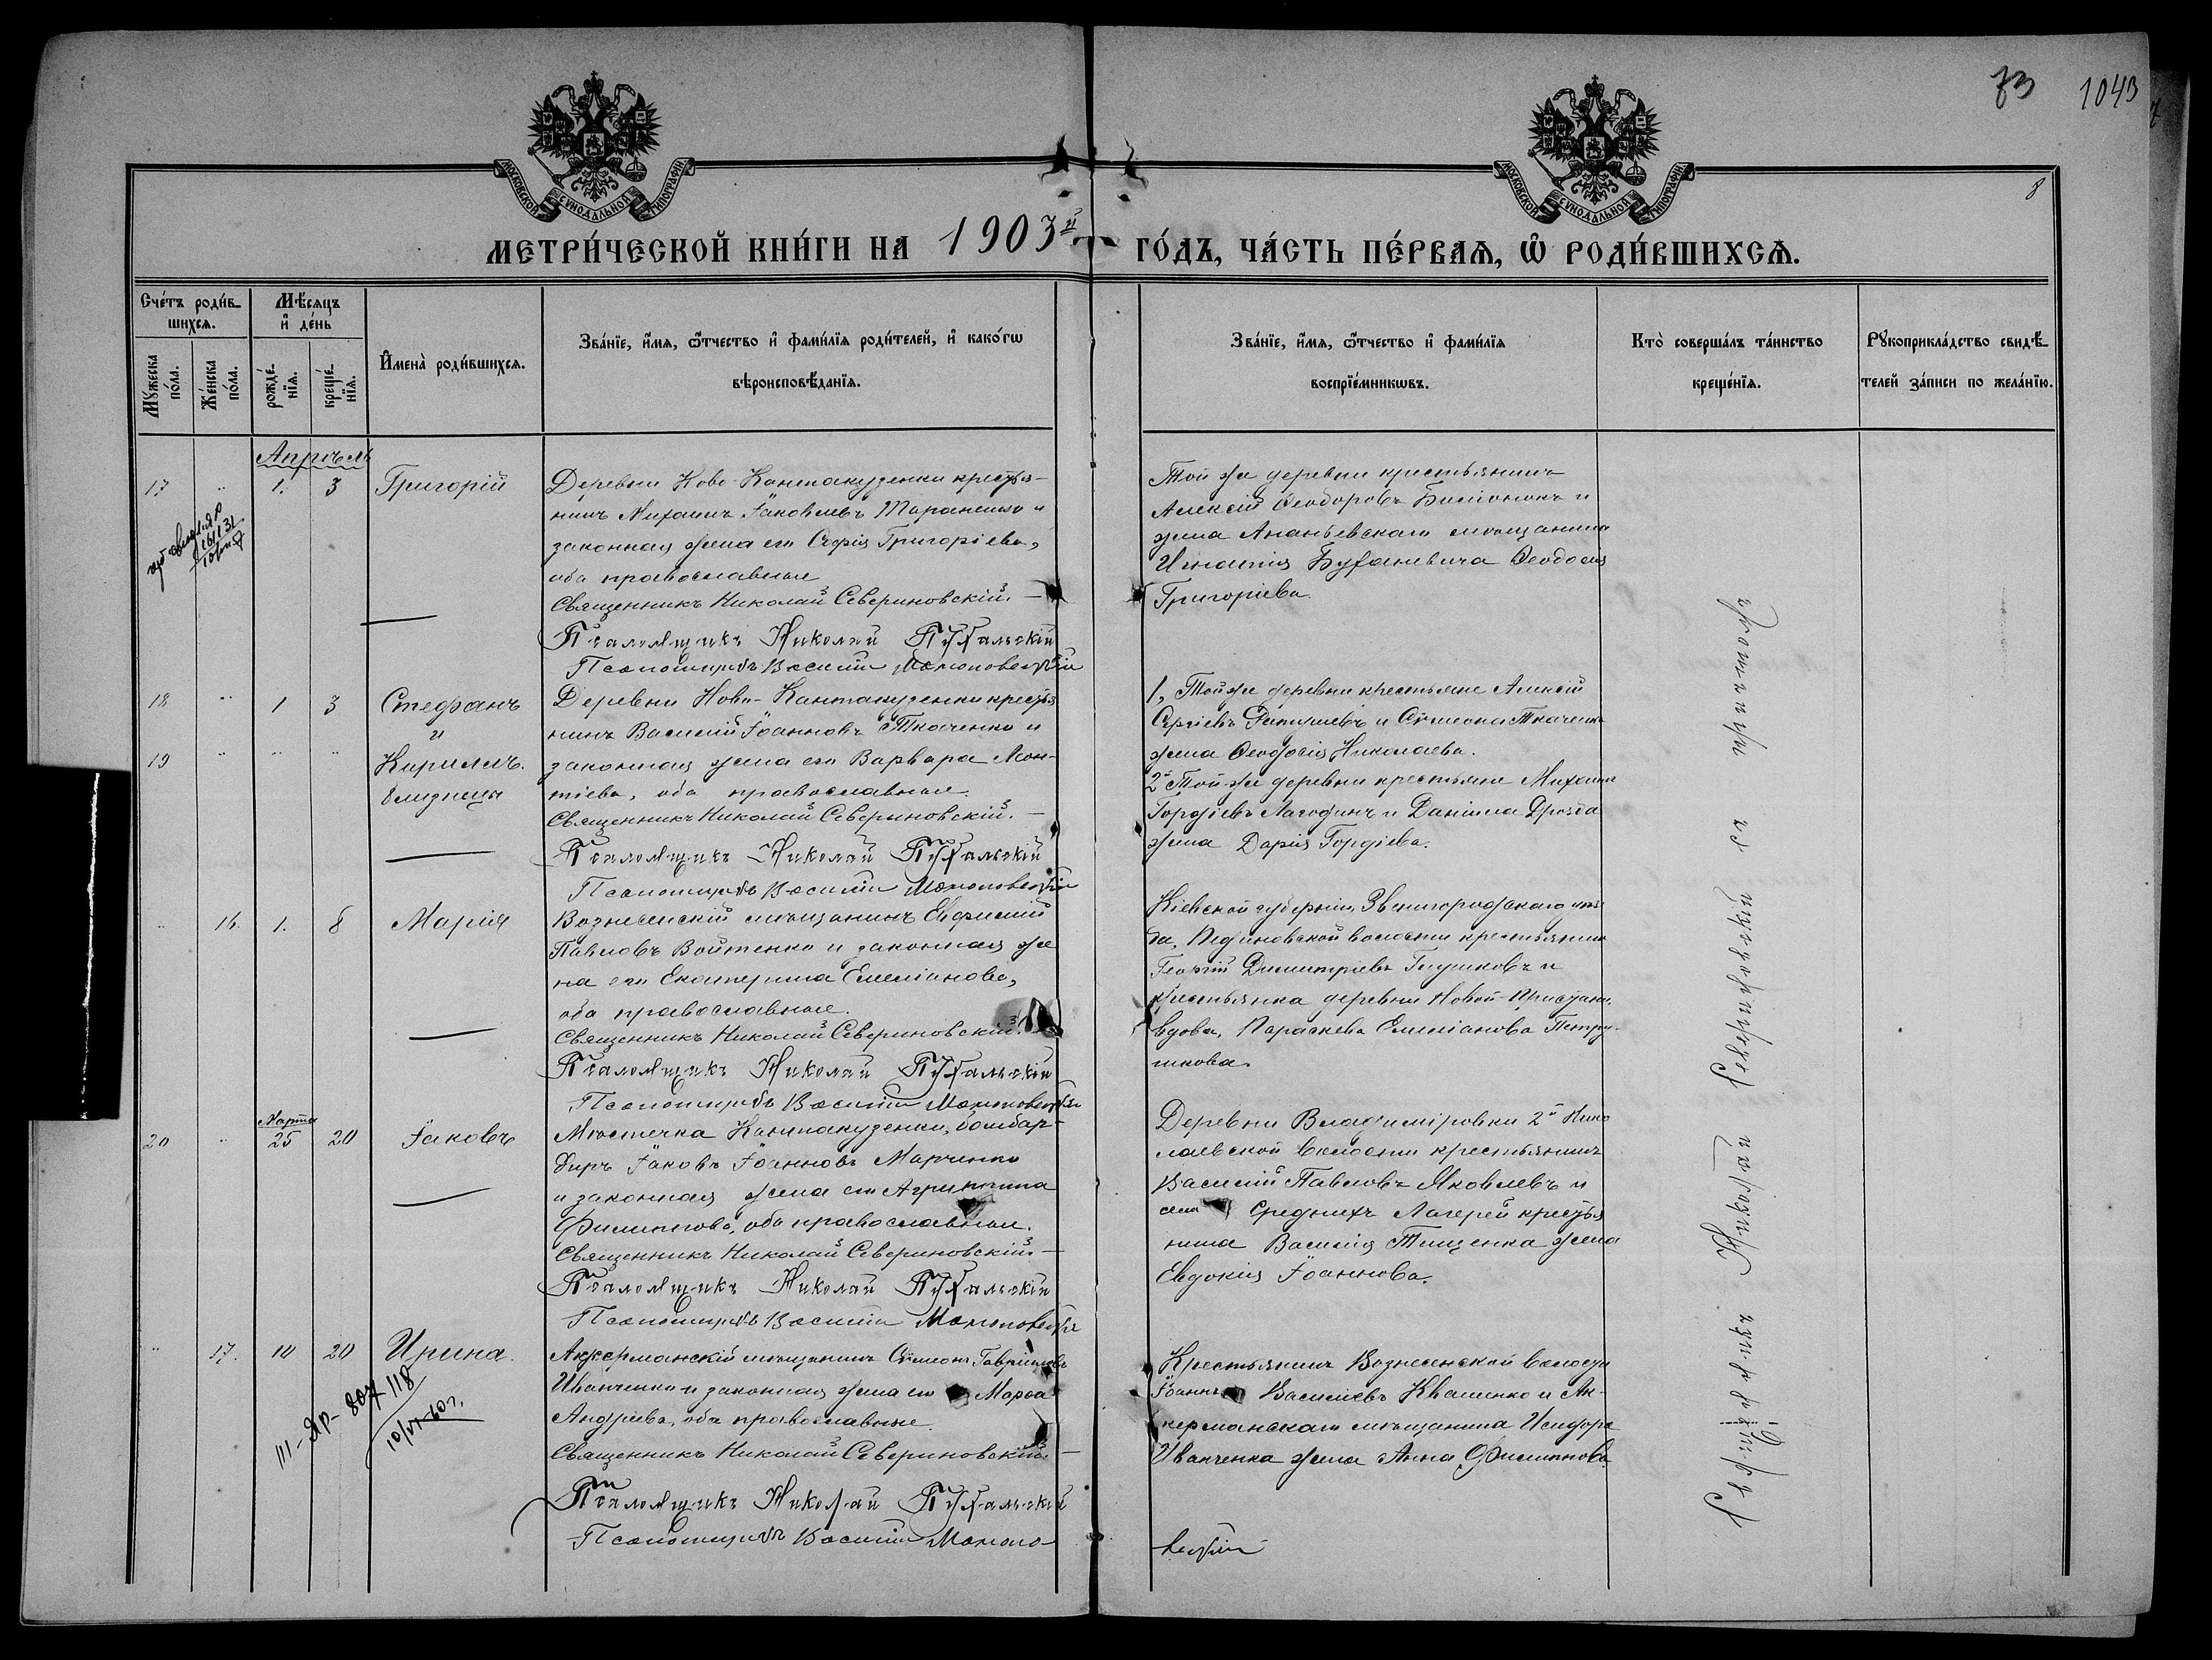 73 1043
8
МОСКОВСКОЙ СѴНОДАЛЬНОЙ ТИПОГРАФІИ
МОСКОВСКОЙ СѴНОДАЛЬНОЙ ТИПОГРАФІИ
МЕТРИ́ЧЕСКОЙ КНИ́ГИ НА 1903й ГО́ДЪ, ЧА́СТЬ ПЕ́РВАЯ, Ѿ РОДИ́ВШИХСЯ.
Сче́тъ роди́в-
шихся.
Мѣ́сяцъ
и҆ де́нь
Мꙋ́жеска по́ла.
Же́нска по́ла.
рожде́-
нїя.
креще́-
нїя.
И҆мена̀ роди́вшихся.
Зва́нїе, и҆́мя, ѻ҆́тчество и҆ фами́лїя роди́телей, и҆ како́гѡ
вѣроисповѣ́данїя.
Зва́нїе, и҆́мя, ѻ҆́тчество и҆ фами́лїя
воспрїе́мникѡвъ.
Кто̀ соверша́лъ та́инство
креще́нїя.
Рꙋкоприкла́дство свидѣ́-
телей за́писи по жела́нїю.
Апрѣль
17 " 1. 3 Григорій
Деревни Ново-Кантакузенки крестья-
нинъ Михаилъ Іаковлевъ Тараненко и
законная жена его Софія Григоріева,
оба православные
Священникъ Николай Севериновскій. —
Псаломщикъ Николай Пухальскій
Псаломщикъ Василій
Той же деревни крестьянинъ
Алексій Ѳеодоровъ и
жена Ананьевскаго мѣщанина
Игнатія Буханевича Ѳеодосія
Григоріева.
18 " 1 3 Стефанъ
и
19 " " " Кириллъ.
близнецы
Деревни Ново-Кантакузенки крестья
нинъ Василій Іоанновъ Ткаченко и
законная жена его Варвара Мон-
тіева, оба православные.
Священникъ Николай Севериновскій. —
Псаломщикъ Николай Пухальскій
Псаломщикъ Василій
1, Той же деревни крестьяне Алексій
Сергіевъ и Симеона Ткаченко
жена Ѳеодосія Николаева.
2й Той же деревни крестьяне Михаилъ
Гордіевъ Лагодинъ и Даніила Дрозда
жена Дарія Гордіева.
" 16. 1. 8 Марія
Вознесенскій мѣщанинъ Евфимій
Павловъ Войтенко и законная же
на его Екатерина Емеліанова,
оба православные.
Священникъ Николай Севериновскій.
Псаломщикъ Николай Пухальскій
Псаломщикъ Василій
Кіевской губерніи, Звенигородскаго уѣз
да, Пединовской волости крестьянинъ
Георгій Димитріевъ Глушковъ и
крестьянка деревни Новой-Пристани
вдова, Параскева Емеліанова Петру-
шкова.
Марта
20 " 25 20 Іаковъ
Мѣстечка Кантакузенки, бомбар-
диръ Іаковъ Іоанновъ Марченко
и законная жена его Агрипина
Филиппова, оба православные.
Священникъ Николай Севериновскій —
Псаломщикъ Николай Пухальскій
Псаломщикъ Василій
Деревни Владиміровки 2й Нико
лаевской волости крестьянинъ
Василій Павловъ Яковлевъ и
села Среднихъ Лагерей крестья
нина Василія Тищенка жена
Евдокія Іоаннова.
" 17. 14 20 Ирина.
Аккерманскій мѣщанинъ Симеонъ Гавріиловъ
Иванченко и законная жена его Марѳа
Андреева, оба православные.
Священникъ Николай Севериновскій —
Псаломщикъ Николай Пухальскій
Псаломщикъ Василій
Крестьянинъ Вознесенской волости
Іоаннъ Василіевъ Квашенко и Ак-
керманскаго мѣщанина Исидора
Иванченка жена Анна Филиппова.
III-ЯР-807118
10/VI-60г.
Священникъ Николай Севериновскій съ причтомъ